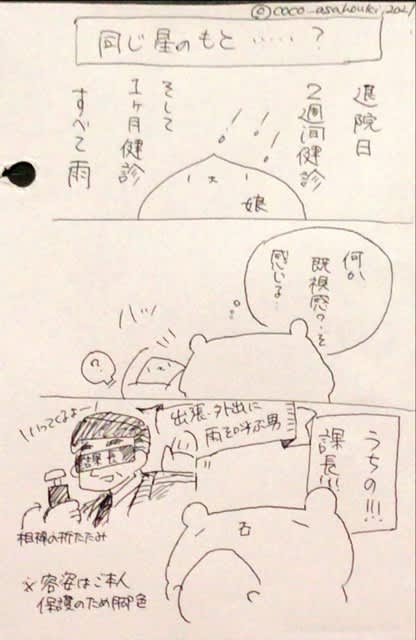 ©coco_asahouki, 2021
同じ星のもと‥‥‥？
退院日
2週間健診
そして
1ヶ月健診
すべて雨
娘
何か
既視感？を
感じる…
ハッ
?
うちの!!!
課長!!!
出張・外出に
雨を呼ぶ男
いってくるよー!
課長
相棒の折りたたみ
※容姿はご本人
保護のため脚色